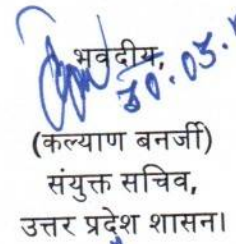 भवदीय,
30.05.
(कल्याण बनर्जी)
संयुक्त सचिव,
उत्तर प्रदेश शासन।